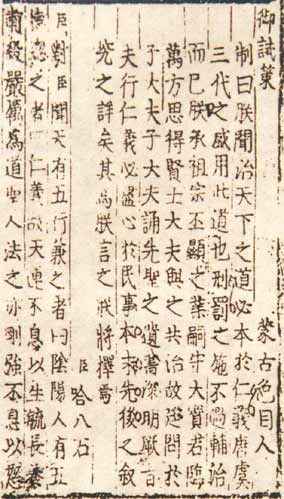 御試策　蒙古色目人
制曰朕聞治天下之道必本於仁義唐虞
三代之盛用此道也刑罰之施不過輔治
而已朕承祖宗丕顯之業嗣守大寶君臨
萬方思得賢士大夫與之共治故延問於
子大夫子大夫誦先聖之遺書深明厥旨
夫行仁義必盡心於民事本末先後之叙
究之詳矣其為朕言之朕將擇焉
臣哈八石
臣對臣聞天有五行兼之者曰陰陽人有五
之者曰仁義故天運不息以生毓長養
肅殺嚴厲為道聖人法之亦剛強不息以